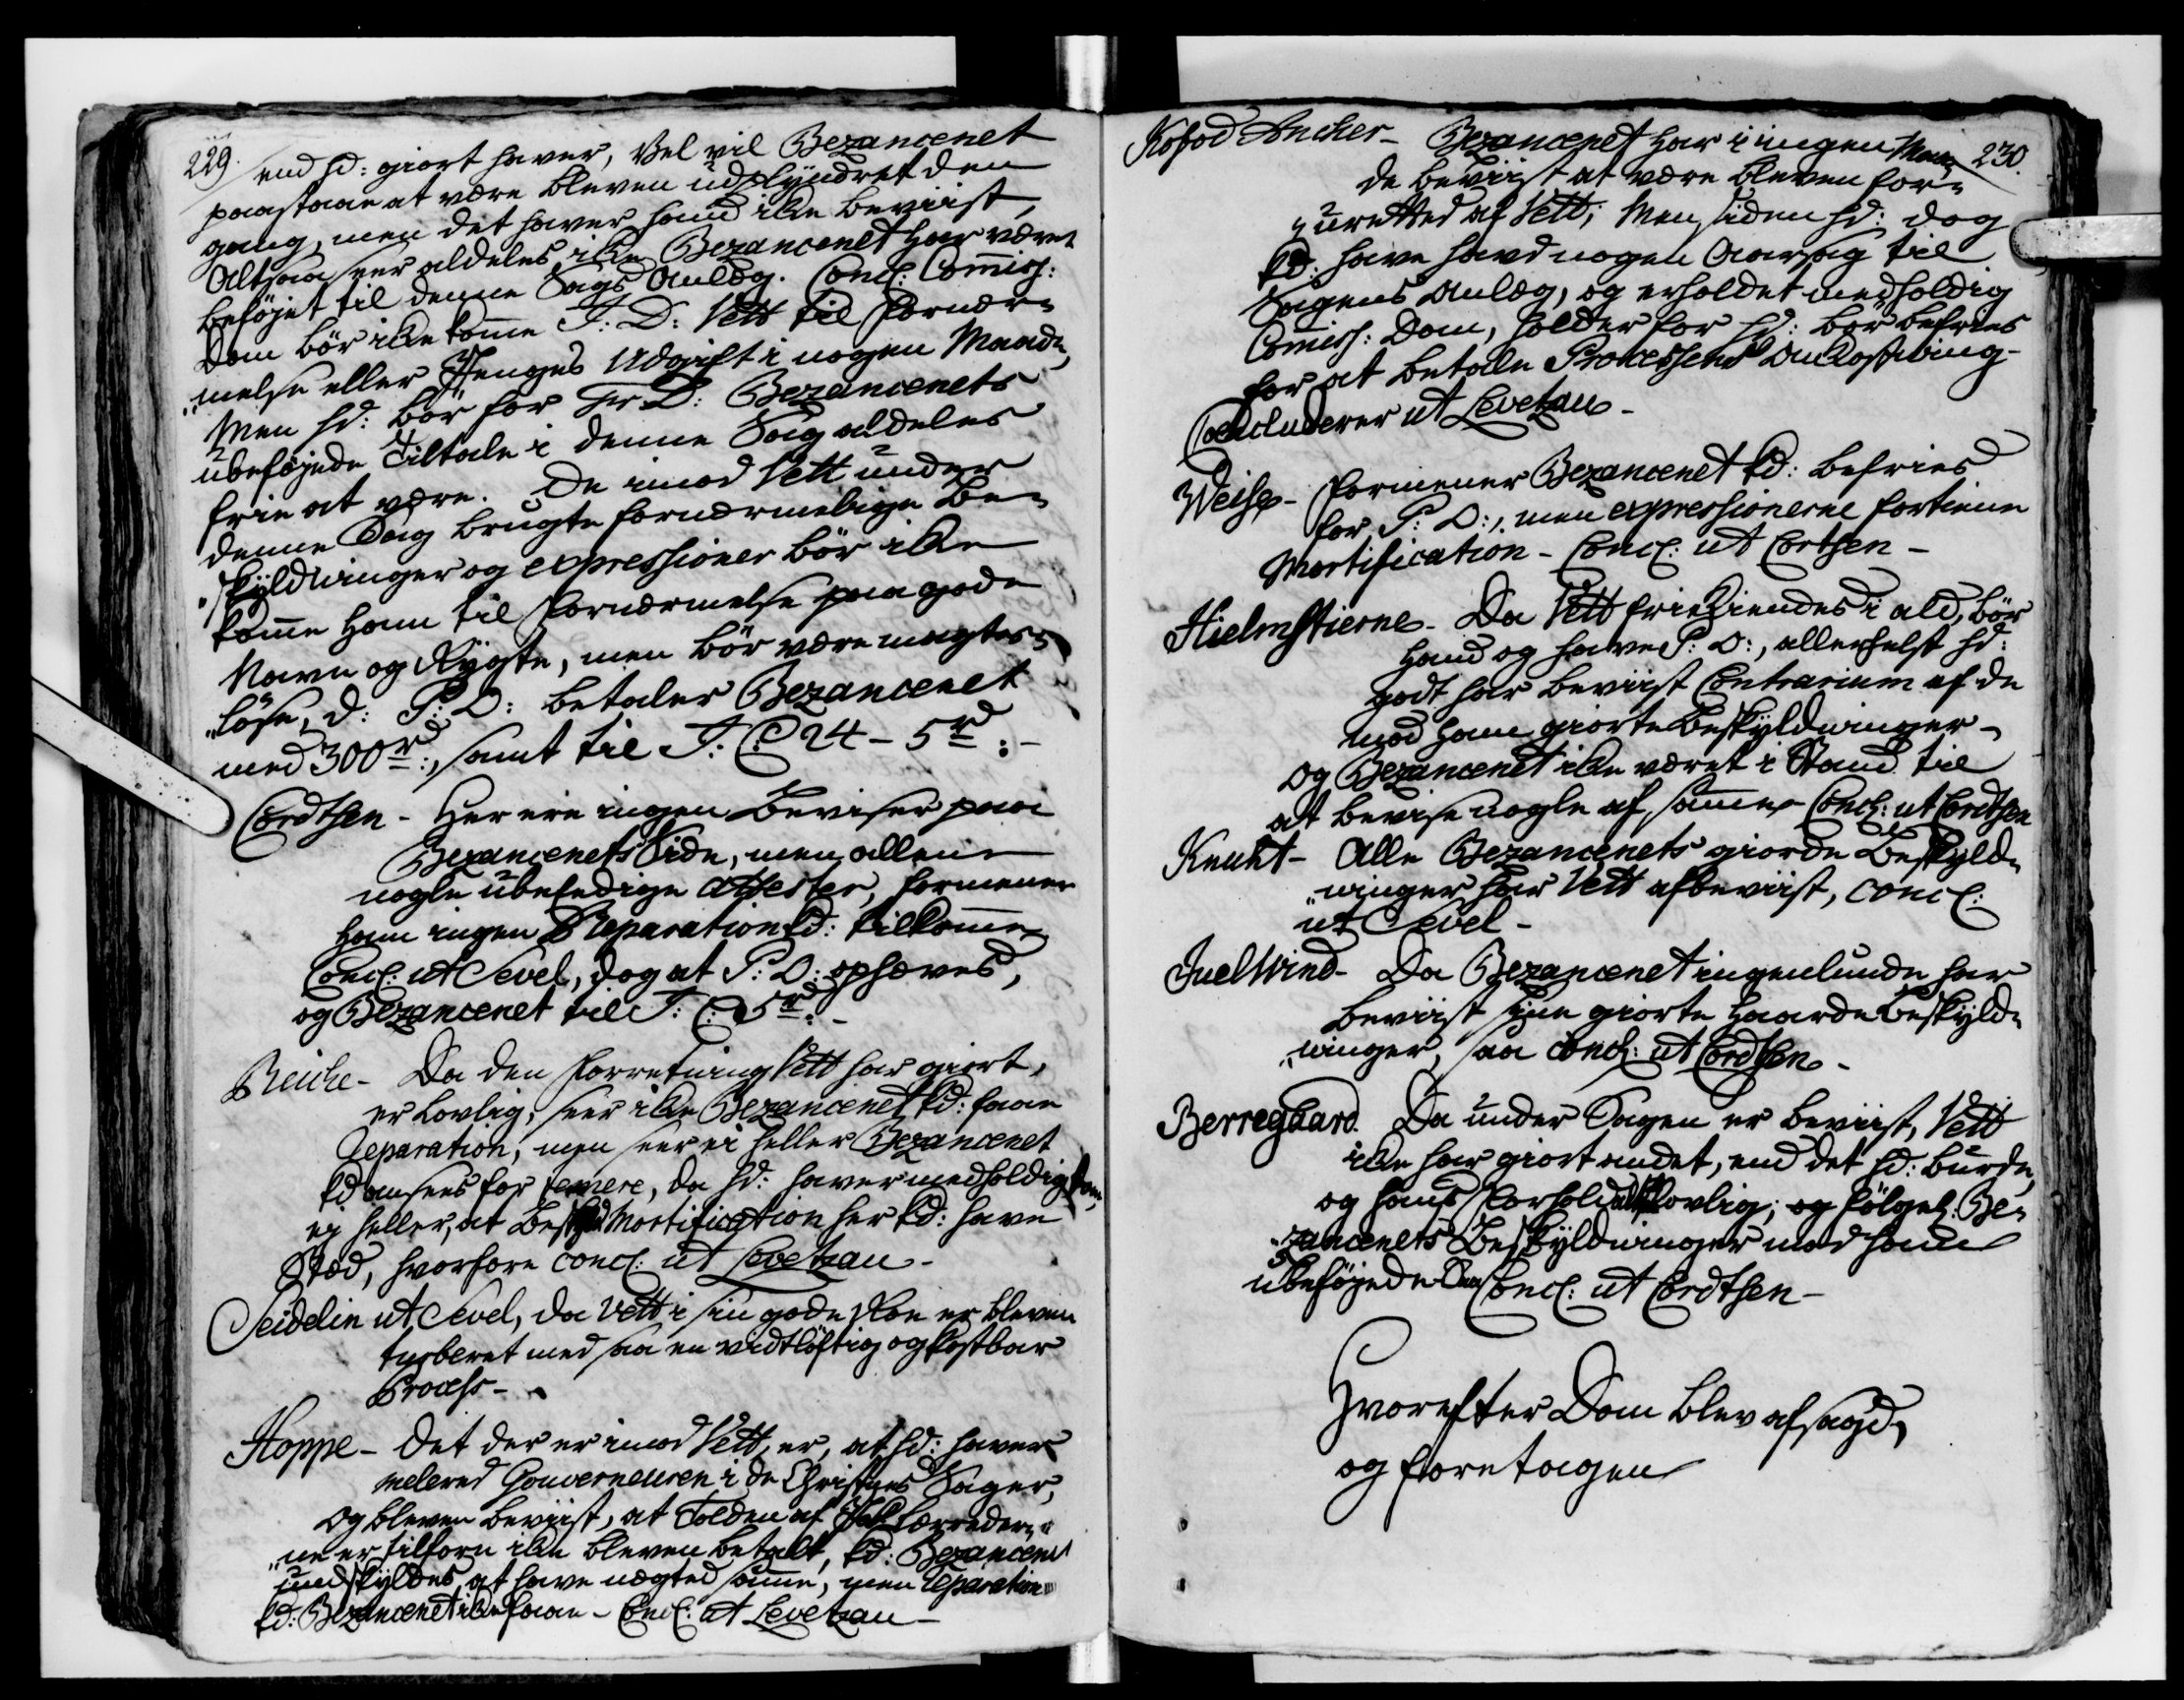 229.
end hd: giort haver, Vel vil Bezancenet
paastaae at være bleven udplyndret den
gang, men det haver hand ikke beviist,
Altsaa seer aldeles ikke Bezancenet har været
beföjet til denne Sags Anlæg. Concl: Commiss:
Dom bör ikke komme P: D: Vett til fornær-
melse eller Penges Udgift i nogen Maade,
Men hd: bör for D: Bezancenets
ubeföjede Tiltale i denne Sag aldeles
frie at være. De imod Vett under
denne Sag brugte fornærmelige Be-
skyldninger og expressioner bör ikke
komme ham til fornærmelse paa gode
Navn og Rygte, men bör være magtes-
löse, P: O: betaler Bezancenet
med 300 rd:, samt til J: C: 24 - 5 rd: -
Cordtsen - Her ere ingen Beviser paa
Bezancenets Side, men allene
nogle ubeedige Attester, formener
ham ingen Reparation kd: tilkomme
Concl: ut Sevel, dog at P: O: ophæves,
og Bezancenet til J: C: 5 rd: -
Reiche - Da den forretning Vett har giort,
er lovlig, seer ikke Bezancenet kd: faae
reparation, men seer ei heller Bezancenet
kd ansees for temere, da hd: haver medholdig Dom,
ej heller, at Beskyld Mortification her kd: have
Stæd, hvorfore concl: ut Levetzau -
Seidelin ut Sevel, da Vett i sin gode Roe er bleven
turberet med saa en vidtlöftig og kostbar
Process -
Hoppe - Det der er imod Vett, er, at hd: haver
melered Gouverneuren i de Christnes Sager,
og bleven beviist, at Tolden af Lærreder-
ne er tilforn ikke bleven betalt, kd: Bezancenet
undskyldes at have nægted samme, men Reparation
kd: Bezancenet ikke faae - Concl: ut Levetzau -
230.
Kofod Ancher - Bezancenet har i ingen Maa-
de beviist at være bleven for-
urettet af Vett; Men siden hd: dog
kd: have havd nogen Aarsag til
Sagens Anlæg, og erholdet medholdig
Comiss: Dom, holder for hd: bör befries
for at betale Processens Omkostning -
Concluderer ut Levetzau -
Weise - formener Bezancenet kd: befries
for P: O:, men expressionerne fortiene
Mortification - Concl: ut Cortsen -
Hielmstierne - Da Vett friekiendes i ald, bör
hand og have P: O:, allerhelst hd:
godt har beviist Contrarium af de
mod ham giorte Beskyldninger -
og Bezancenet ikke været i Stand til
at bevise nogle af samme - Concl: ut Cordtsen
Knuht - Alle Bezancenets giorde Beskyld-
ninger har Vett afbeviist, concl:
ut Sevel -
Juel Wind - Da Bezancenet ingenlunde har
beviist sine giorte haarde Beskyld-
ninger, saa concl: ut Cordtsen -
Berregaard. Da under Sagen er beviist, Vett
ikke har giort andet, end det hd: burde,
og hans forhold lovlig, og fölgel: Be-
zancenets Beskyldninger mod ham
ubeföjede Concl: ut Cordtsen -
Hvorefter Dom blev afsagd,
og foretagen